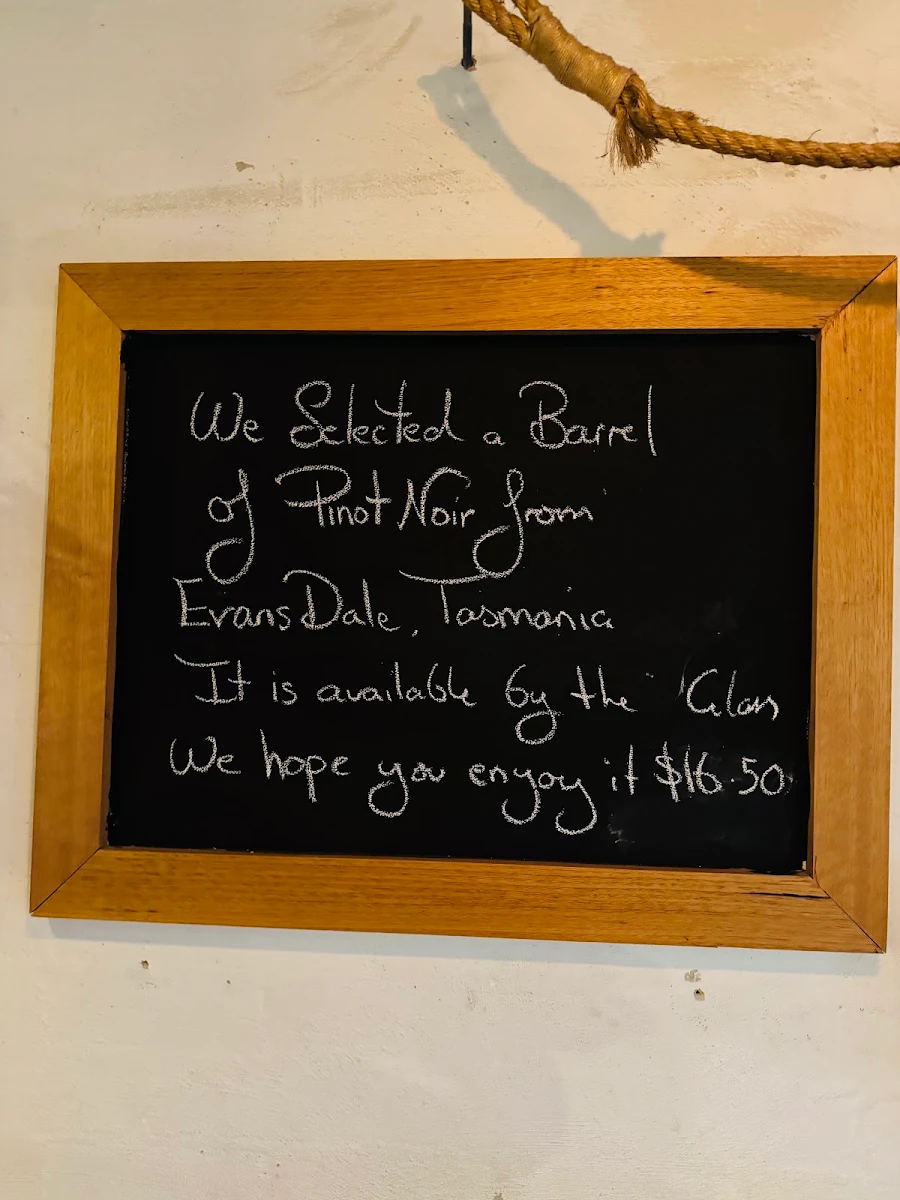 We Selected a Barrel
of Pinot Noir from
Evans Dale, Tasmania
It is available by the Glass
We hope you enjoy it $16.50